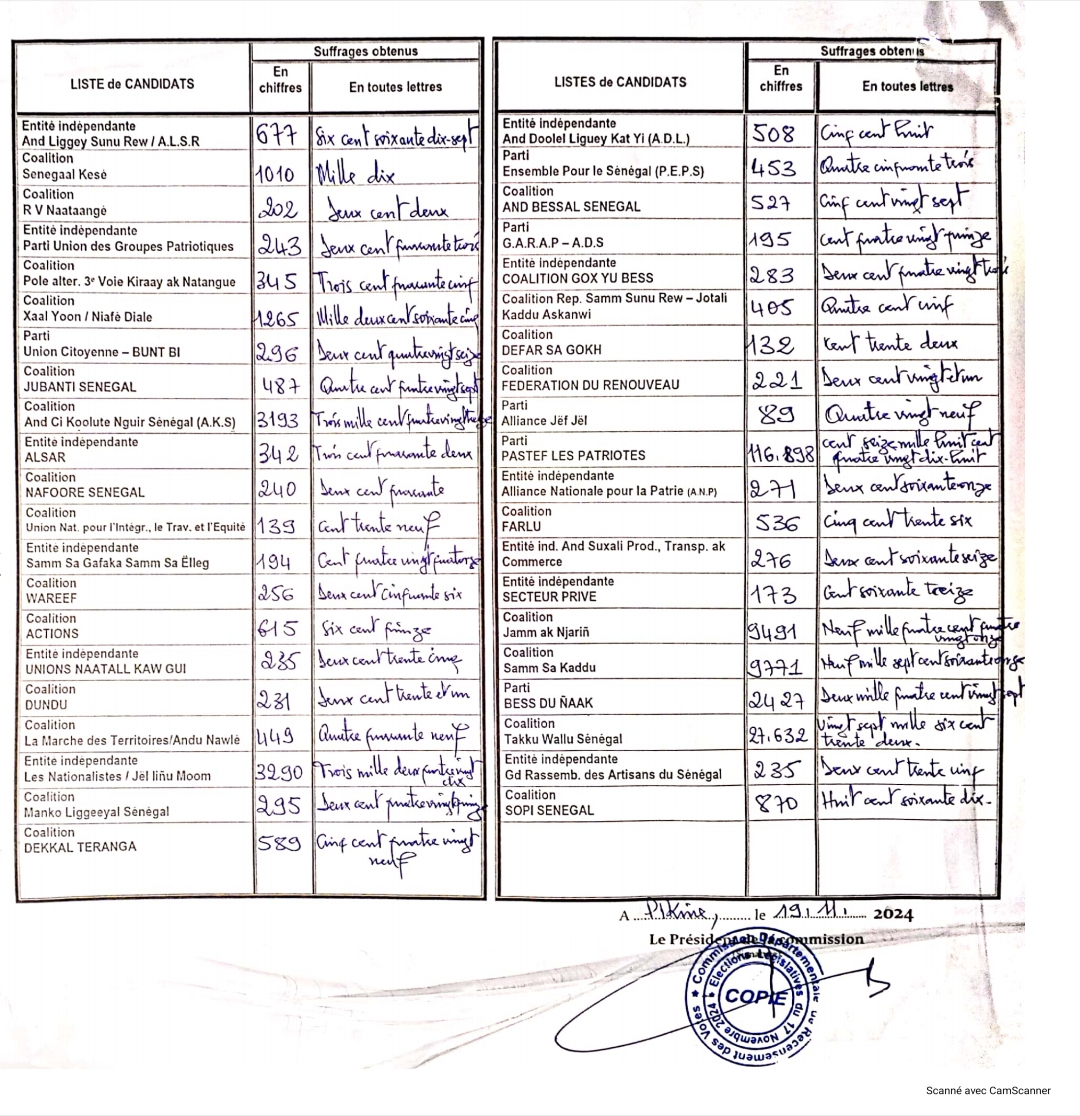 LISTE de CANDIDATS
Suffrages obtenus
En chiffres
En toutes lettres
Entité indépendante
And Liggey Sunu Rew / A.L.S.R
677
Six cent soixante dix-sept
Coalition
Senegaal Kesé
1010
Mille dix
Coalition
R V Naataangé
202
Deux cent deux
Entité indépendante
Parti Union des Groupes Patriotiques
243
Deux cent quarante trois
Coalition
Pole alter. 3e Voie Kiraay ak Natangue
345
Trois cent quarante cinq
Coalition
Xaal Yoon / Niafé Diale
1265
Mille deux cent soixante cinq
Parti
Union Citoyenne – BUNT BI
296
Deux cent quatre vingt seize
Coalition
JUBANTI SENEGAL
487
Quatre cent quatre vingt sept
Coalition
And Ci Koolute Nguir Sénégal (A.K.S)
3193
Trois mille cent quatre vingt treize
Entité indépendante
ALSAR
342
Trois cent quarante deux
Coalition
NAFOORE SENEGAL
240
Deux cent quarante
Coalition
Union Nat. pour l'Intégr., le Trav. et l'Equité
139
Cent trente neuf
Entité indépendante
Samm Sa Gafaka Samm Sa Ëlleg
194
Cent quatre vingt quatorze
Coalition
WAREEF
256
Deux cent cinquante six
Coalition
ACTIONS
615
Six cent quinze
Entité indépendante
UNIONS NAATALL KAW GUI
235
Deux cent trente cinq
Coalition
DUNDU
231
Deux cent trente et un
Coalition
La Marche des Territoires/Andu Nawlé
449
Quatre quarante neuf
Entité indépendante
Les Nationalistes / Jël liñu Moom
3290
Trois mille deux quatre vingt
dix
Coalition
Manko Liggeeyal Sénégal
295
Deux cent quatre vingt quinze
Coalition
DEKKAL TERANGA
589
Cinq cent quatre vingt
neuf
LISTES de CANDIDATS
Suffrages obtenus
En chiffres
En toutes lettres
Entité indépendante
And Doolel Liguey Kat Yi (A.D.L.)
508
Cinq cent huit
Parti
Ensemble Pour le Sénégal (P.E.P.S)
453
Quatre cinquante trois
Coalition
AND BESSAL SENEGAL
527
Cinq cent vingt sept
Parti
G.A.R.A.P – A.D.S
195
Cent quatre vingt quinze
Entité indépendante
COALITION GOX YU BESS
283
Deux cent quatre vingt trois
Coalition Rep. Samm Sunu Rew – Jotali
Kaddu Askanwi
405
Quatre cent cinq
Coalition
DEFAR SA GOKH
132
Cent trente deux
Coalition
FEDERATION DU RENOUVEAU
221
Deux cent vingt et un
Parti
Alliance Jëf Jël
89
Quatre vingt neuf
Parti
PASTEF LES PATRIOTES
116.898
Cent seize mille huit cent
quatre vingt dix-huit
Entité indépendante
Alliance Nationale pour la Patrie (A.N.P)
271
Deux cent soixante onze
Coalition
FARLU
536
Cinq cent trente six
Entité ind. And Suxali Prod., Transp. ak
Commerce
276
Deux cent soixante seize
Entité indépendante
SECTEUR PRIVE
173
Cent soixante treize
Coalition
Jamm ak Njariñ
9491
Neuf mille quatre cent quatre
vingt onze
Coalition
Samm Sa Kaddu
9771
Neuf mille sept cent soixante onze
Parti
BESS DU ÑAAK
2427
Deux mille quatre cent vingt sept
Coalition
Takku Wallu Sénégal
27.632
Vingt sept mille six cent
trente deux.
Entité indépendante
Gd Rassemb. des Artisans du Sénégal
235
Deux cent trente cinq
Coalition
SOPI SENEGAL
870
Huit cent soixante dix.
A ... Pikine, ........ le 19.11. 2024
Le Président de la Commission
Commission Départementale de Recensement des Votes
Elections Législatives du 17 Novembre 2024
COPIE
Scanné avec CamScanner